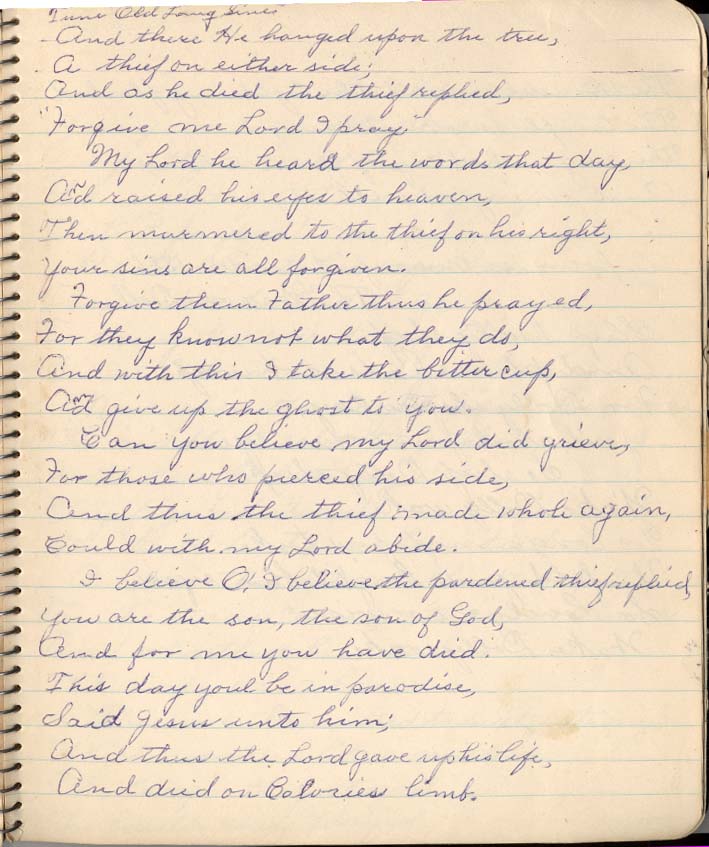 Tune Old Lang Sine
And there He hanged upon the tree,
A thief on either side;
And as he died the thief replied,
"Forgive me Lord I pray"
My Lord he heard the words that day,
And raised his eyes to heaven,
Then murmered to the thief on his right,
Your sins are all forgiven.
Forgive them Father thus he prayed,
For they know not what they do,
And with this I take the bitter cup,
And give up the ghost to you.
Can you believe my Lord did grieve,
For those who pierced his side,
And thus the thief made whole again,
Could with my Lord abide.
I believe O! I believe the pardened thief replied,
You are the son, the son of God,
And for me you have died.
This day youl be in parodise,
Said Jesus unto him;
And thus the Lord gave up his life,
And died on Calories limb.